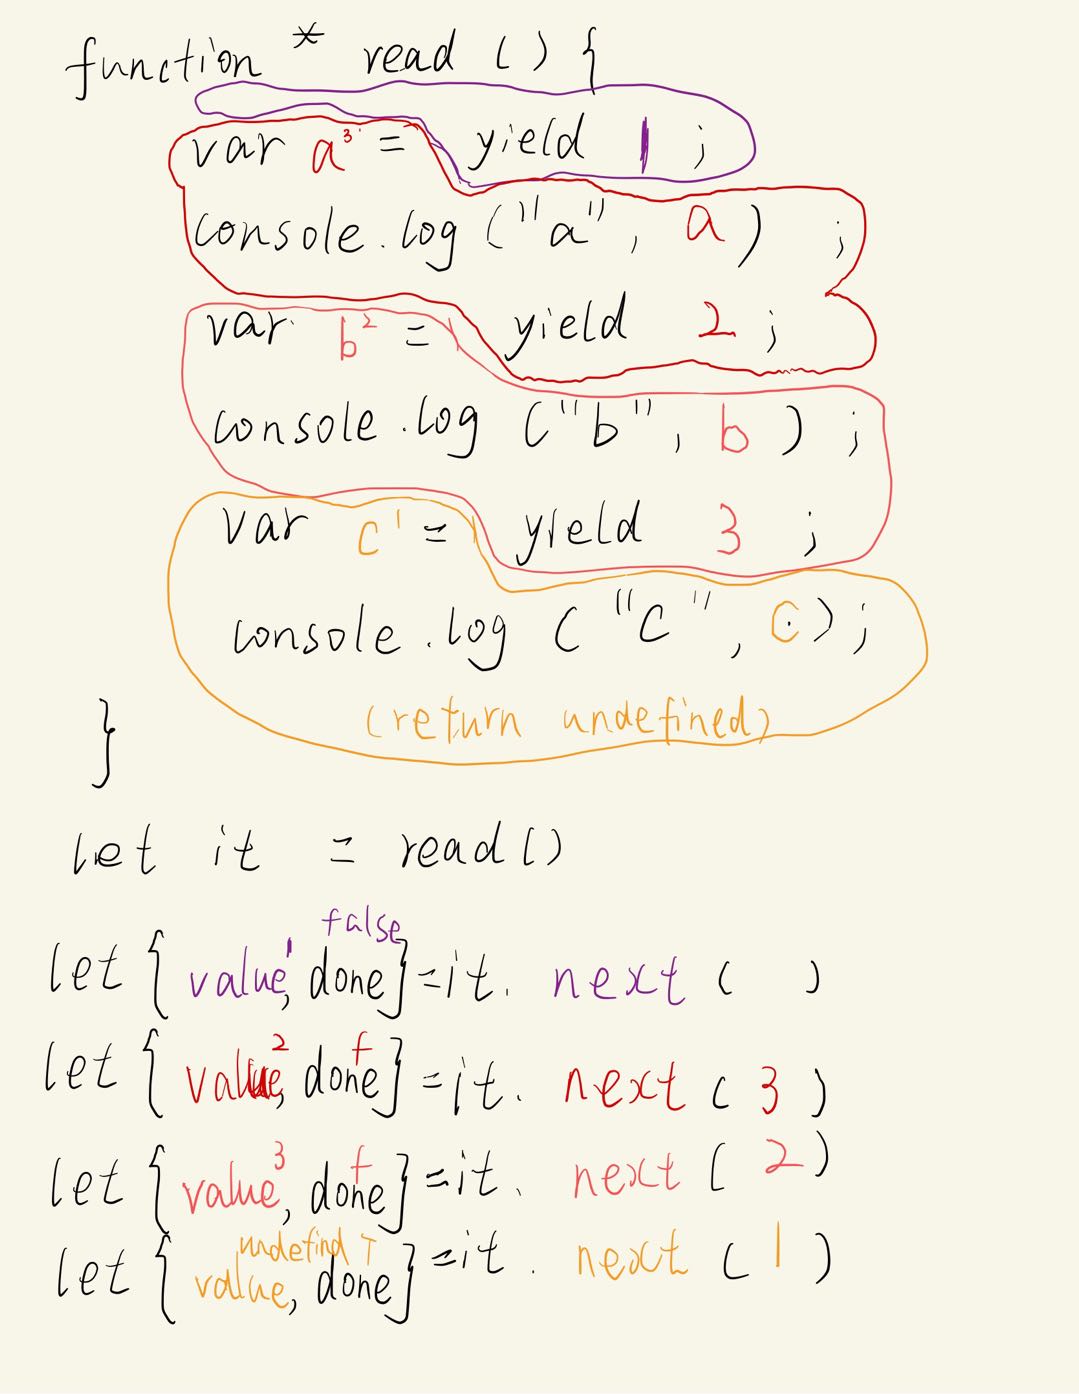 function * read () {
var a³ = yield 1 ;
console.log ("a", a) ;
var b² = yield 2 ;
console.log ("b", b) ;
var c¹ = yield 3 ;
console.log ("c", c) ;
(return undefined)
}
let it = read()
false
let { value¹, done } = it. next ( )
2 f
let { value, done } = it. next ( 3 )
3 f
let { value, done } = it. next ( 2 )
undefind T
let { value, done } = it. next ( 1 )